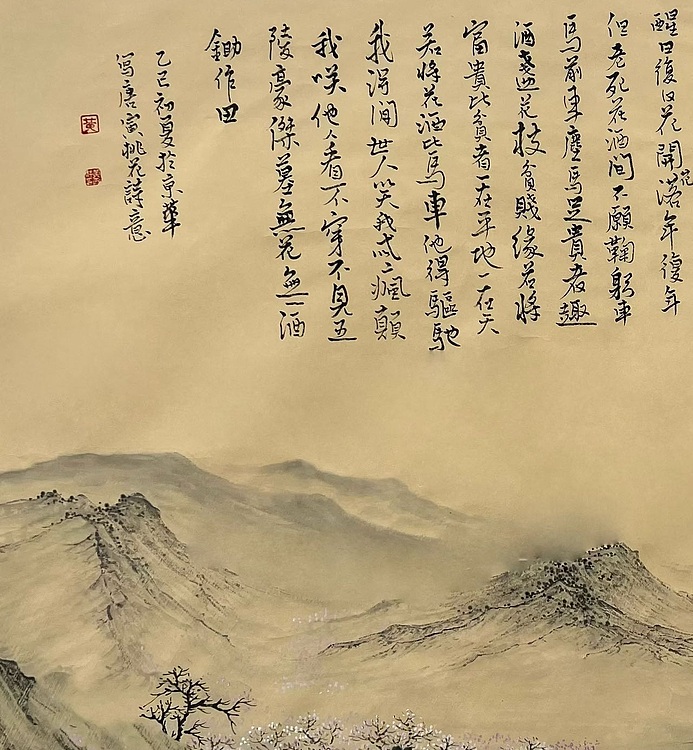 醒日復日花開花落年復年
但老死花酒間不願鞠躬車
馬前車塵馬足貴者趣
酒盞花枝貧賤緣若將
富貴比貧者一在平地一在天
若將花酒比馬車他得驅馳
我得閒世人笑我忒瘋顛
我咲他人看不穿不見五
陵豪傑墓無花無酒
鋤作田
乙巳初夏於京華
写唐寅桃花詩意
黃